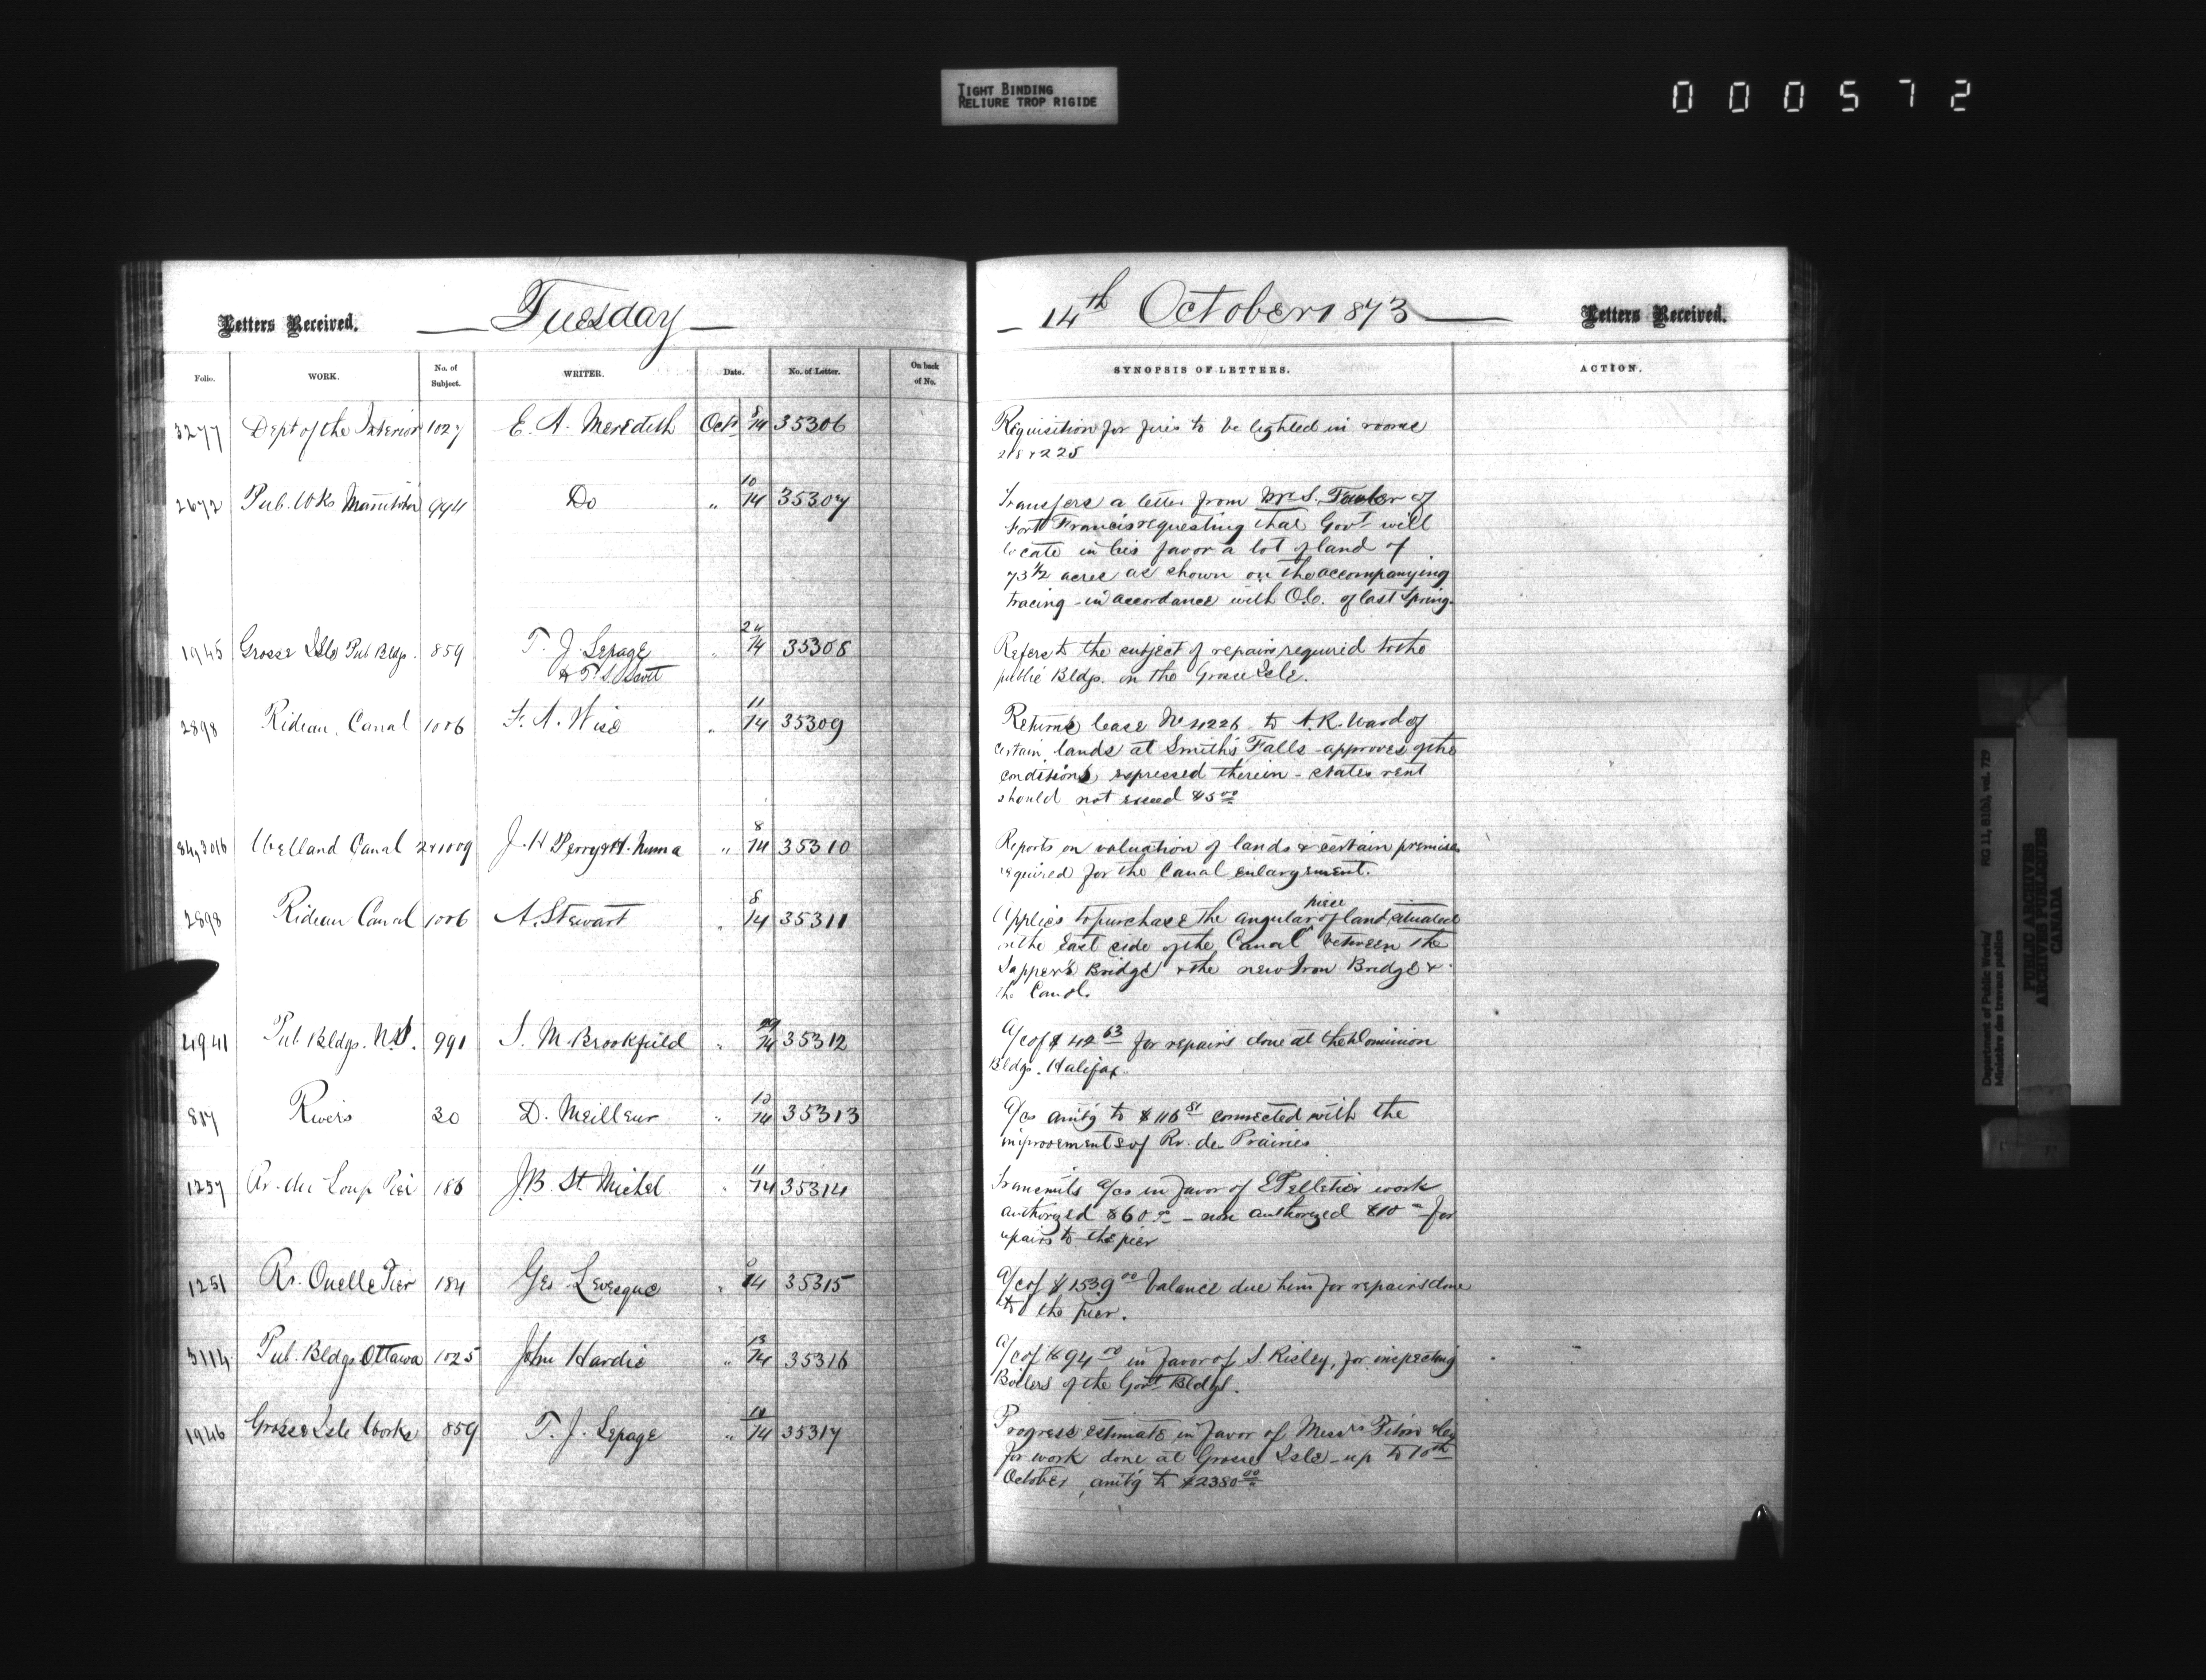 TIGHT BINDING
RELIURE TROP RIGIDE
000572
Letters Received.
Tuesday
14th October 1873
Letters Received.
Folio.
WORK.
No. of Subject.
WRITER.
Date.
No. of Letter.
On back of No.
SYNOPSIS OF LETTERS.
ACTION.
3277 Dept of the Interior 1027 E. A. Meredith Oct 8/14 35306
Requisition for fires to be lighted in rooms
218 & 225
2672 Pub. Wks Manitoba 994 Do " 10/14 35307
Transfers a letter from Mr S. of
Fort Francis requesting that Govt will
locate in his favor a lot of land of
73 1/2 acres as shown on the accompanying
tracing - in accordance with O.C. of last Spring.
1945 Grosse Isle Pub Bldgs. 859 T. J. Lepage " 14 35308
Refers to the subject of repairs required to the
public Bldgs. on the Grosse Isle.
2898 Rideau Canal 1006 F. A. Wise " 11/14 35309
Returns lease No 4226 to A. R. Ward of
certain lands at Smith's Falls - approves of the
conditions expressed therein - states rent
should not exceed $5 00
Welland Canal J. H Perry & H. " 8/14 35310
Reports on valuation of lands & certain premises
required for the Canal enlargement.
2898 Rideau Canal 1006 A. Stewart " 8/14 35311
piece
Applies to purchase the angular of land situated
on the East side of the Canal between the
Sapper's Bridge & the new Iron Bridge &
the Canal.
4941 Pub. Bldgs. N.S. 991 S. M. Brookfield " 14 35312
A/c of $ 42 63 for repairs done at the Dominion
Bldgs. Halifax.
817 Rivers 30 D. Meilleur " 10/14 35313
A/cs amtg to $ 116 81 connected with the
improvements of Rv. des Prairies
1257 Rv. du Loup Pier 186 J. B. St. Michel " 11/14 35314
Transmits a/cs in favor of E Pelletier work
authorized $60 - non authorized $10 for
repairs to the pier
1251 Rv. Ouelle Pier 184 Geo Levesque " 14 35315
A/c of $ 1539 00 balance due him for repairs done
to the pier.
3114 Pub. Bldgs Ottawa 1025 John Hardie " 13/14 35316
A/c of $ 94 00 in favor of S. Risley, for inspecting
Boilers of the Govt Bldgs.
1946 Grosse Isle Works 859 T. J. Lepage " 10/14 35317
Progress estimate in favor of Messrs
for work done at Grosse Isle - up to 10th
October, amtg to $2380 00
Department of Public Works/
Ministère des travaux publics
RG 11, B1(b), vol. 729
PUBLIC ARCHIVES
ARCHIVES PUBLIQUES
CANADA